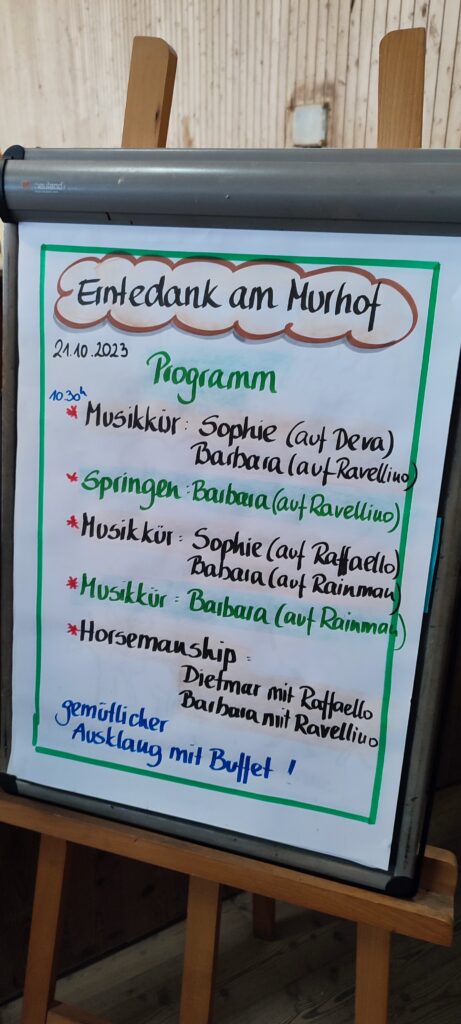 neuland
Erntedank am Murhof
21.10.2023
Programm
10.30h
* Musikkür: Sophie (auf Deva)
Barbara (auf Ravellino)
* Springen: Barbara (auf Ravellino)
* Musikkür: Sophie (auf Raffaello)
Babara (auf Rainman)
* Musikkür: Barbara (auf Rainman)
* Horsemanship:
Dietmar mit Raffaello
Barbara mit Ravellino
gemütlicher
Ausklang mit Buffet!